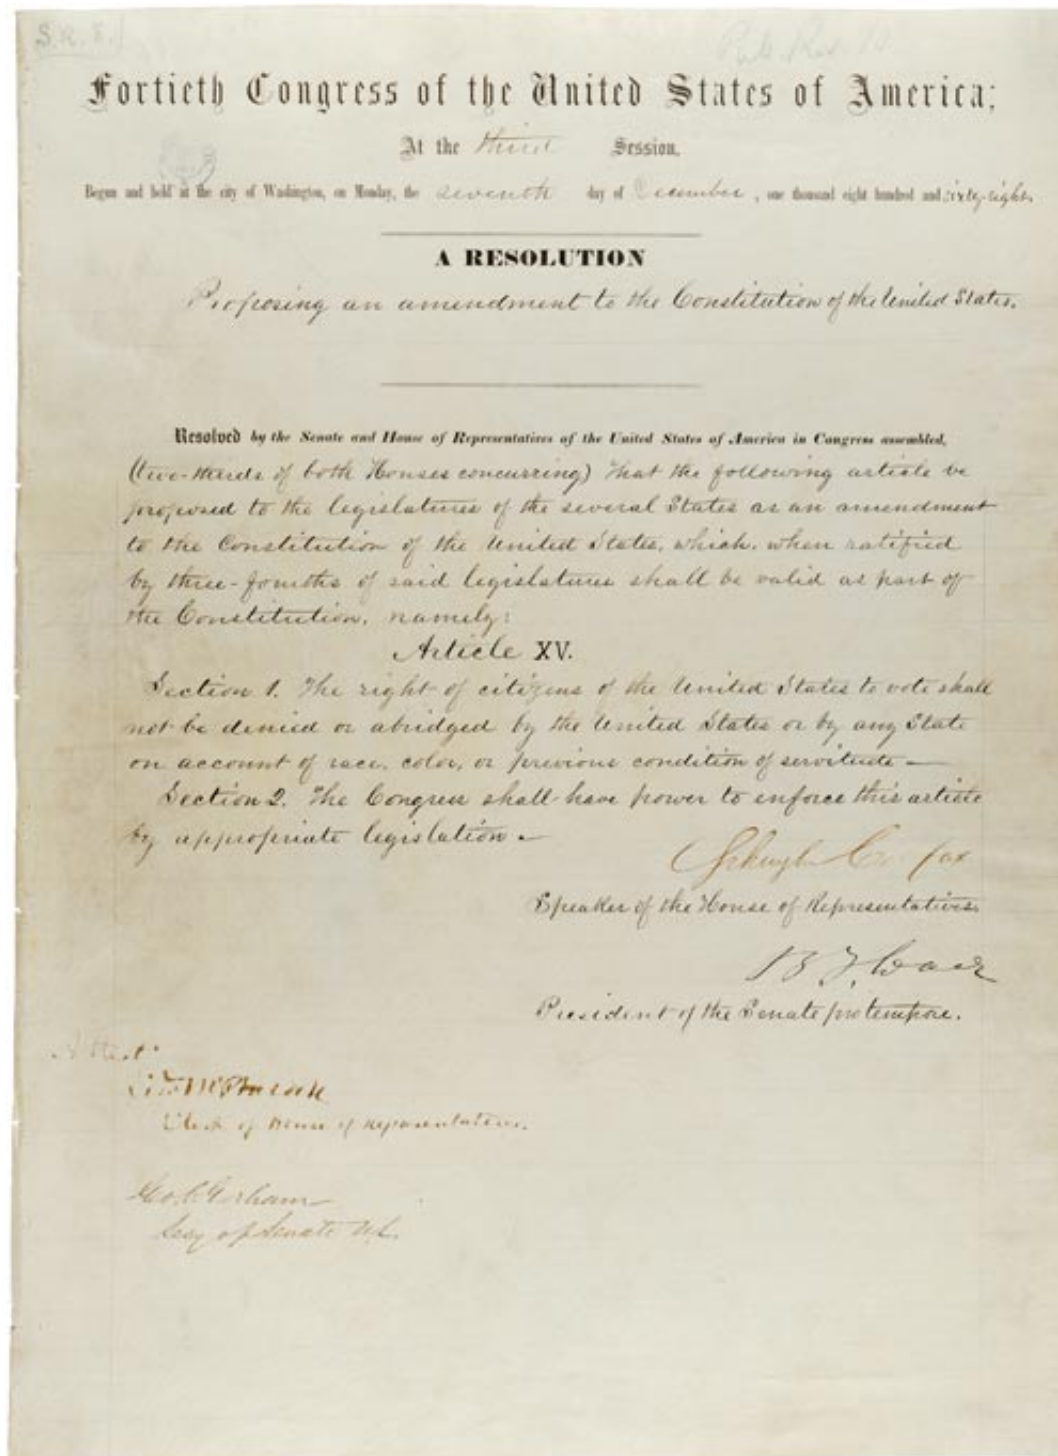 S.R. 8.
Fortieth Congress of the United States of America;
At the third Session,
Begun and held at the city of Washington, on Monday, the seventh day of December, one thousand eight hundred and sixty-eight
A RESOLUTION
Proposing an amendment to the Constitution of the United States.
Resolved by the Senate and House of Representatives of the United States of America in Congress assembled,
(two-thirds of both Houses concurring) That the following article be
proposed to the legislatures of the several States as an amendment
to the Constitution of the United States, which, when ratified
by three-fourths of said legislatures shall be valid as part of
the Constitution, namely:
Article XV.
Section 1. The right of citizens of the United States to vote shall
not be denied or abridged by the United States or by any State
on account of race, color, or previous condition of servitude—
Section 2. The Congress shall have power to enforce this article
by appropriate legislation—
Schuyler Colfax
Speaker of the House of Representatives.
B. F. Wade
President of the Senate pro tempore.
Attest:
McPherson
Clerk of House of Representatives.
Geo. C. Gorham
Secy of Senate U.S.